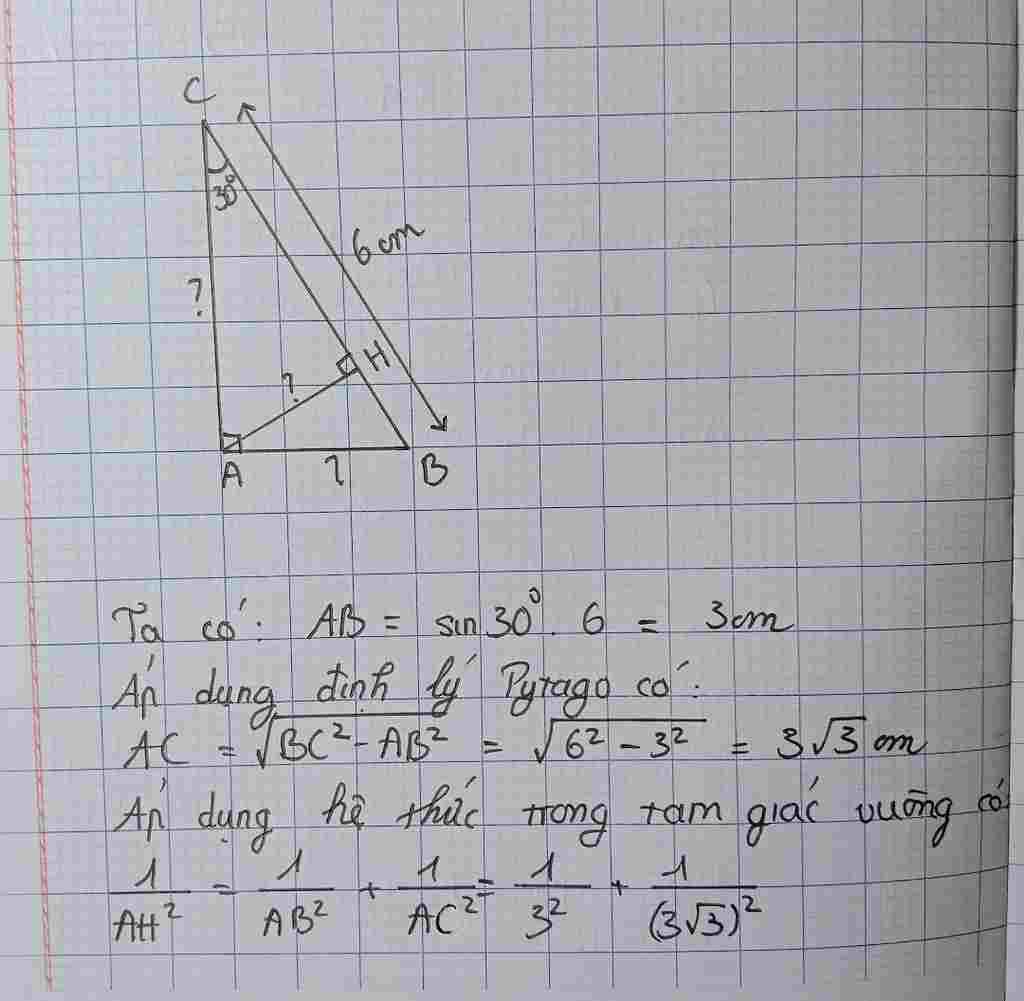 C
30°
6 cm
?
H
?
A
?
B
Ta có: AB = sin 30°. 6 = 3cm
Áp dụng định lý Pytago có:
AC = √(BC² - AB²) = √(6² - 3²) = 3√3 cm
Áp dụng hệ thức trong tam giác vuông có
1/AH² = 1/AB² + 1/AC² = 1/3² + 1/(3√3)²